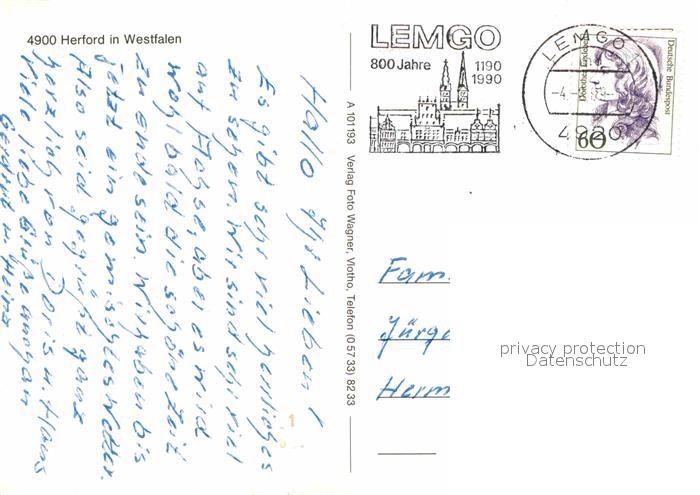 4900 Herford in Westfalen
Hallo Ihr Lieben!
Es gibt sehr viel herrliches
zu sehen. Wir sind sehr viel
auf Achse, aber es wird
wohl bald die schöne Zeit
zu ende sein. Wir haben bis
jetzt ein gemischtes Wetter.
Also seid gegrüßt ganz
herzlich von Doris u. Hans
Viele liebe Grüße
Gerdrut u. Heinz
A 101193 Verlag Foto Wagner, Vlotho, Telefon (05733) 8233
LEMGO
800 Jahre 1190
1990
LEMGO
-4.
4920
Deutsche Bundespost
Dorothea Erxleben
60
Fam.
Jürge
Herm
privacy protection
Datenschutz